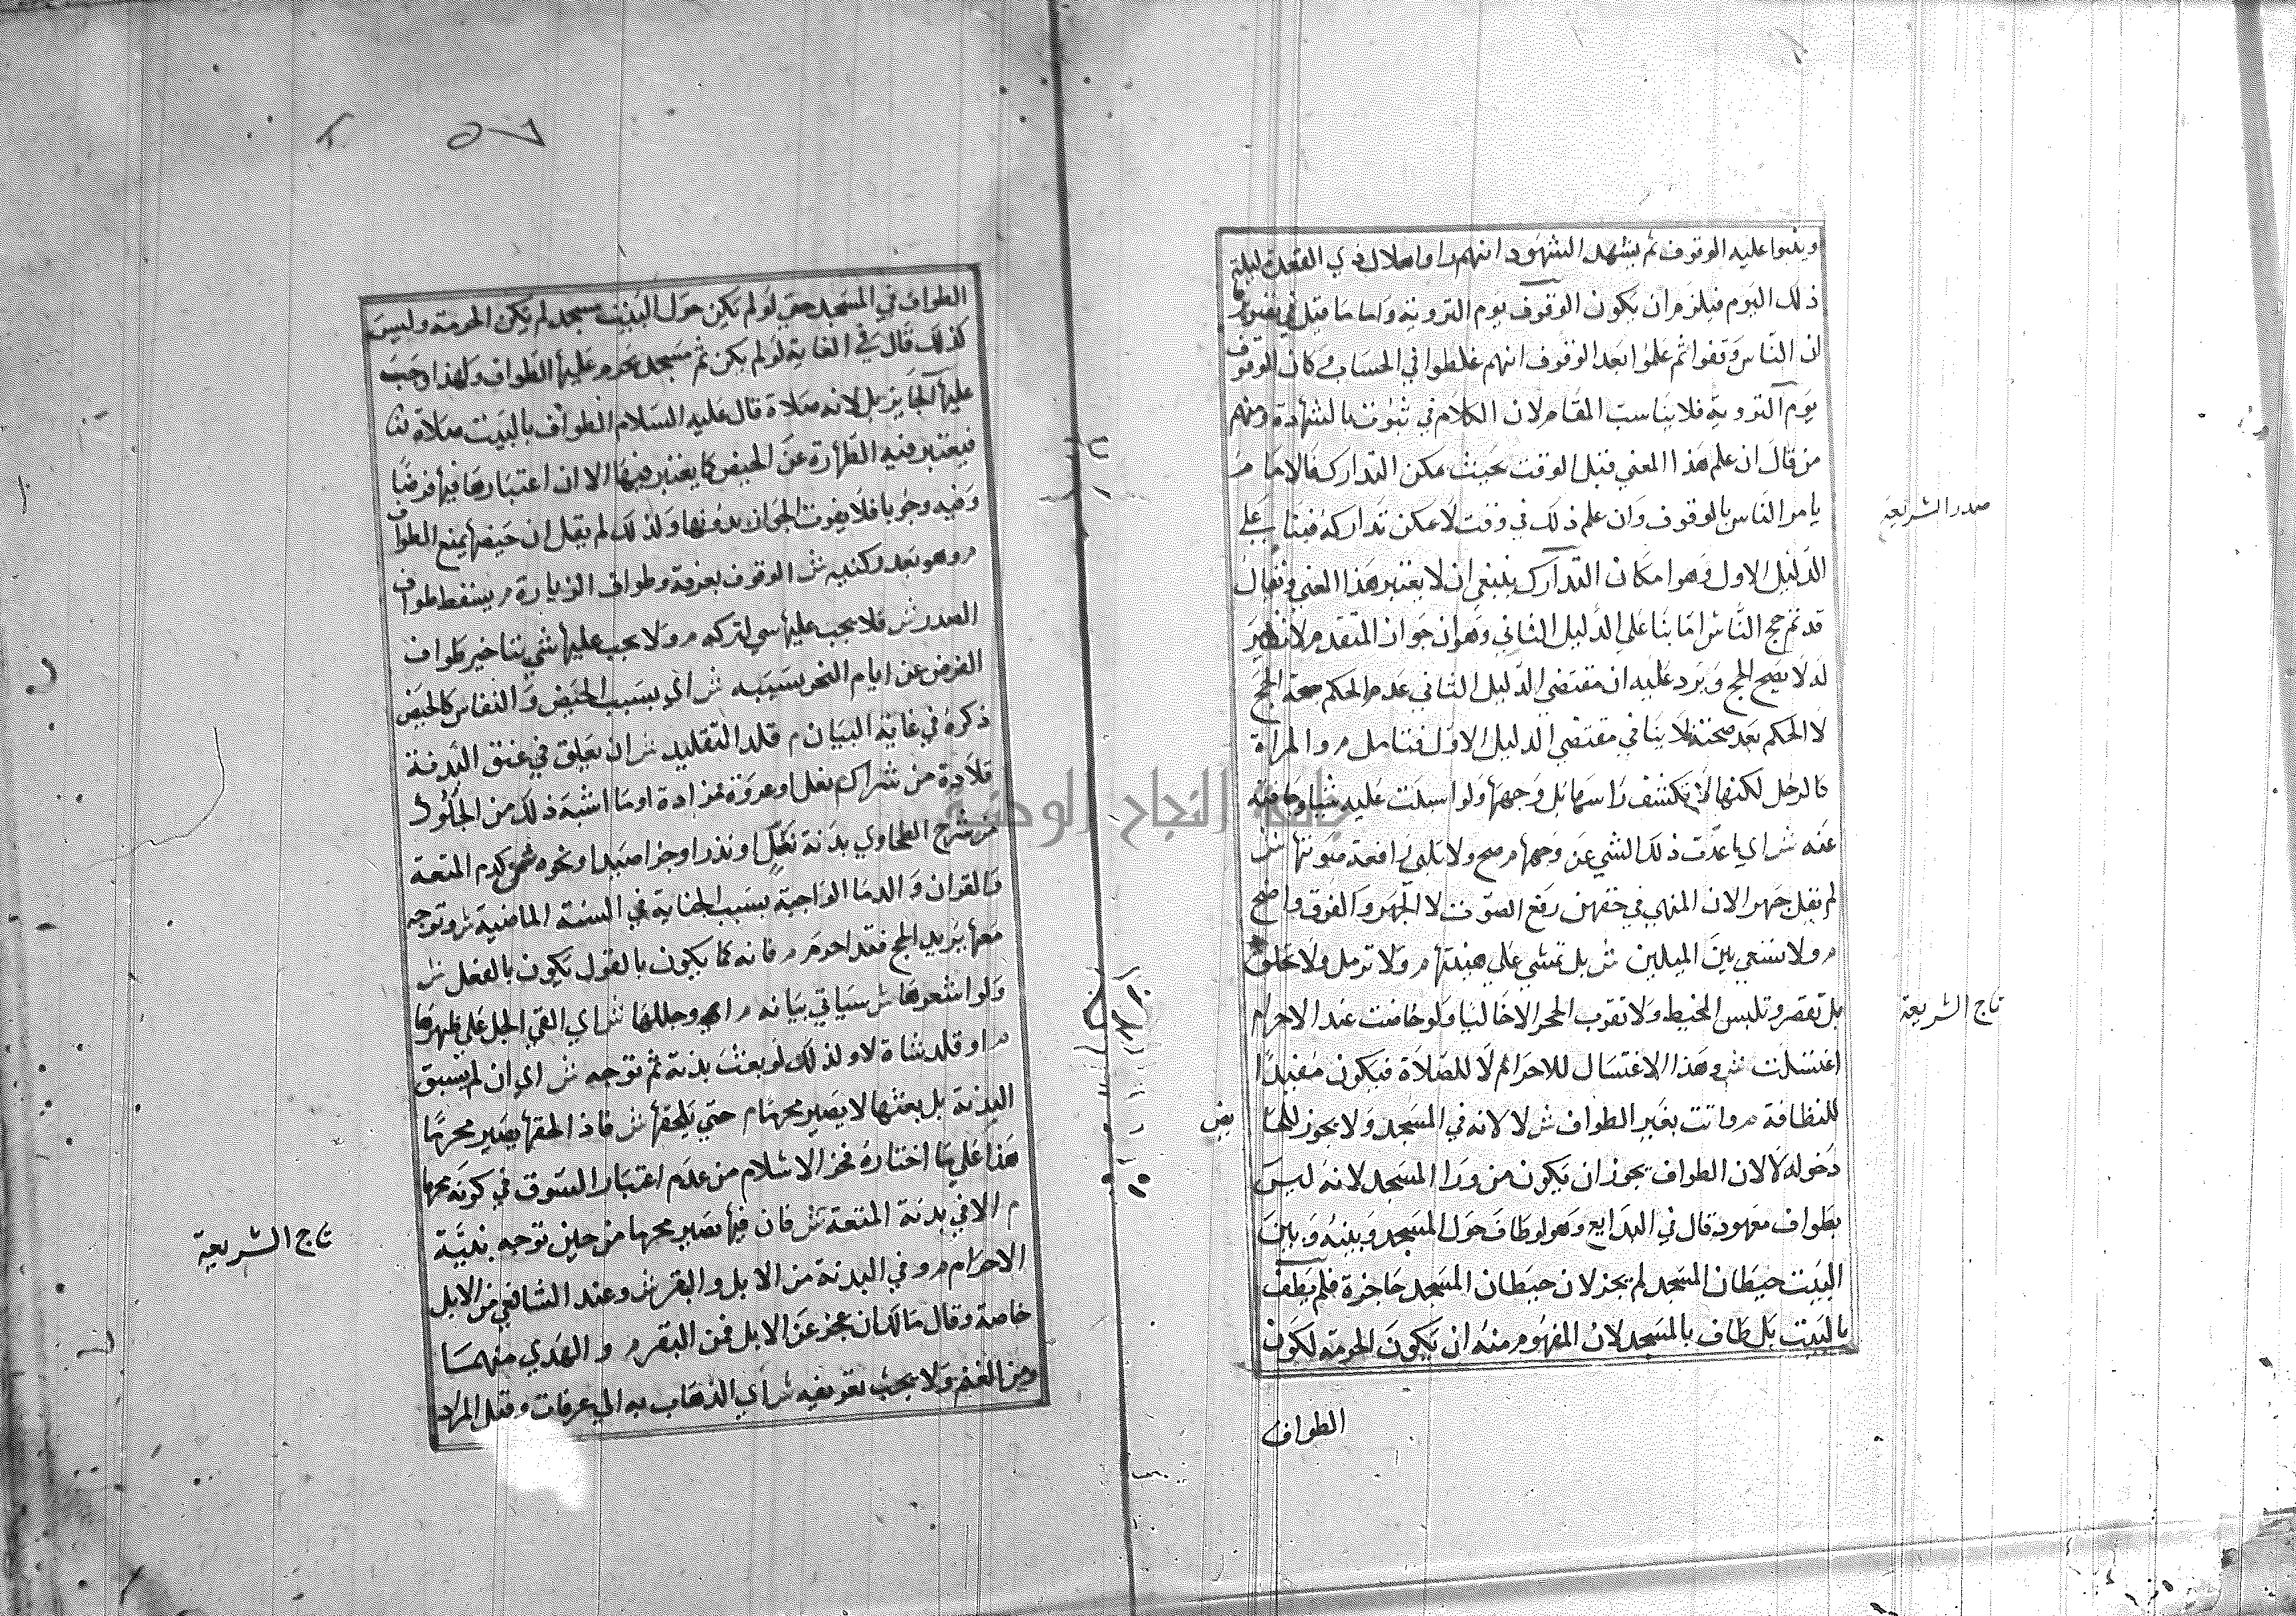 ويثبوا عليه الوقوف ثم يشهد الشهود انهم راوا هلال ذي القعدة ليلة
ذلك اليوم فيلزم ان يكون الوقوف يوم التروية واما ما قيل في تصويرها
ان الناس وقفوا ثم علموا بعد الوقوف انهم غلطوا في الحساب وكان الوقوف
يوم التروية فلا يناسب المقام لان الكلام في ثبوت بالشهادة ومنهم
من قال ان علم هذا المعني قبل الوقت بحيث يمكن التدارك فالامام
يامر الناس بالوقوف وان علم ذلك في وقت لا يمكن تداركه فبنا علي
الدليل الاول وهو امكان التدارك ينبغي ان لا يعتبر هذا المعني ويقال
قد تم حج الناس اما بنا علي الدليل الثاني وهو ان جواز المتقدم لا نظير
له لا يصح الحج ويرد عليه ان مقتضي الدليل الثاني عدم الحكم صحة الحج
لا الحكم بعد صحته فلا ينافي مقتضي الدليل الاول فتامل م والمراة
كالرجل لكنها لا تكشف راسها بل وجهها ولو اسبلت عليه شيا وجافته
عنه ش اي باعدت ذلك الشي عن وجهها م صح ولا تلبي رافعة صوتها ش
لم يقل جهرا لان المنهي في حقهن رفع الصوت لا الجهر والفرق واضح
م ولا تسعي بين الميلين ش بل تمشي علي هينتها م ولا ترمل ولا تحلق
بل تقصر وتلبس المخيط ولا تقرب الحجر الا خاليا ولو حاضت عند الاحرام
اغتسلت ش وهذا الاغتسال للاحرام لا للصلاة فيكون مفيدا
للنظافة م واتت بغير الطواف ش لا لانه في المسجد ولا يجوز للحا
يض
دخوله لان الطواف يجوز ان يكون من ورا المسجد لانه ليس
بطواف معهود قال في البدايع وهو لو طاف حول المسجد وبينه وبين
البيت حيطان المسجد لم يجز لان حيطان المسجد حاجزة فلم يطف
بالبيت بل طاف بالمسجد لان المفهوم منه ان يكون الحرمة لكون
الطواف
صدر الشريعة
تاج الشريعة
الطواف في المسجد حتي لو لم يكن حول البيت مسجد لم يكن الحرمة وليس
كذلك قال في الغاية لو لم يكن ثم مسجد يحرم عليها الطواف ولهذا وجب
عليها الجابر بل لانه صلاة قال عليه السلام الطواف بالبيت صلاة
فيعتبر فيه الطهارة عن الحيض كما يعتبر فيها الا ان اعتبارها فيها فرضا
وفيه وجوبا فلا يفوت الجواز بدونها ولذلك لم يقل ان حيضها يمنع الطواف
م وهو بعد ركنيه ش الوقوف بعرفة وطواف الزيارة م يسقط طواف
الصدر ش فلا يجب عليها شي لتركه م ولا يجب عليها شي بتاخير طواف
الفرض عن ايام النحر بسببه ش اي بسبب الحيض والنفاس كالحيض
ذكره في غاية البيان م قلد التقليد ش ان يعلق في عنق البدنة
قلادة من شراك نعل او عروة مزادة او ما اشبه ذلك من الجلود
من شرح الطحاوي بدنة نفل او نذر او جزا صيد او نحوه ش كدم المتعة
والقران والدما الواجبة بسبب الجناية في السنة الماضية ش وتوجه
معها يريد الحج فقد احرم م فانه كما يكون بالقول يكون بالفعل ش
ولو اشعرها ش سياتي بيانه م او جللها ش اي القي الجل علي ظهرها
م او قلد شاة لا ولذلك لو بعث بدنة ثم توجه ش اي ان لم يسبق
البدنة بل بعثها لا يصير محرما م حتي يلحقها ش فاذا لحقها يصير محرما
هذا علي ما اختاره فخر الاسلام من عدم اعتبار السوق في كونه محرما
م الا في بدنة المتعة ش فان فيها يصير محرما من حين توجه بنية
الاحرام م وفي البدنة من الابل والبقر ش وعند الشافعي من الابل
خاصة وقال مالك ان عجز عن الابل فمن البقر م والهدي منهما
ومن الغنم ولا يجب تعريفه ش اي الذهاب به الي عرفات وقيل المراد
تاج الشريعة